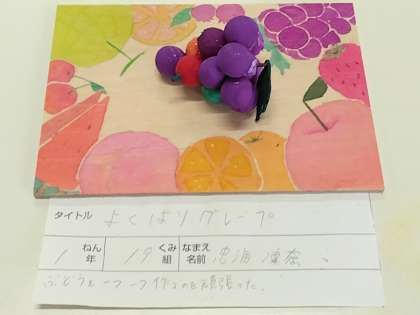 タイトル よくばりグレープ
1 ねん 年 19 くみ 組 なまえ 名前
ぶどうを一つ一つ作るのを頑張った。